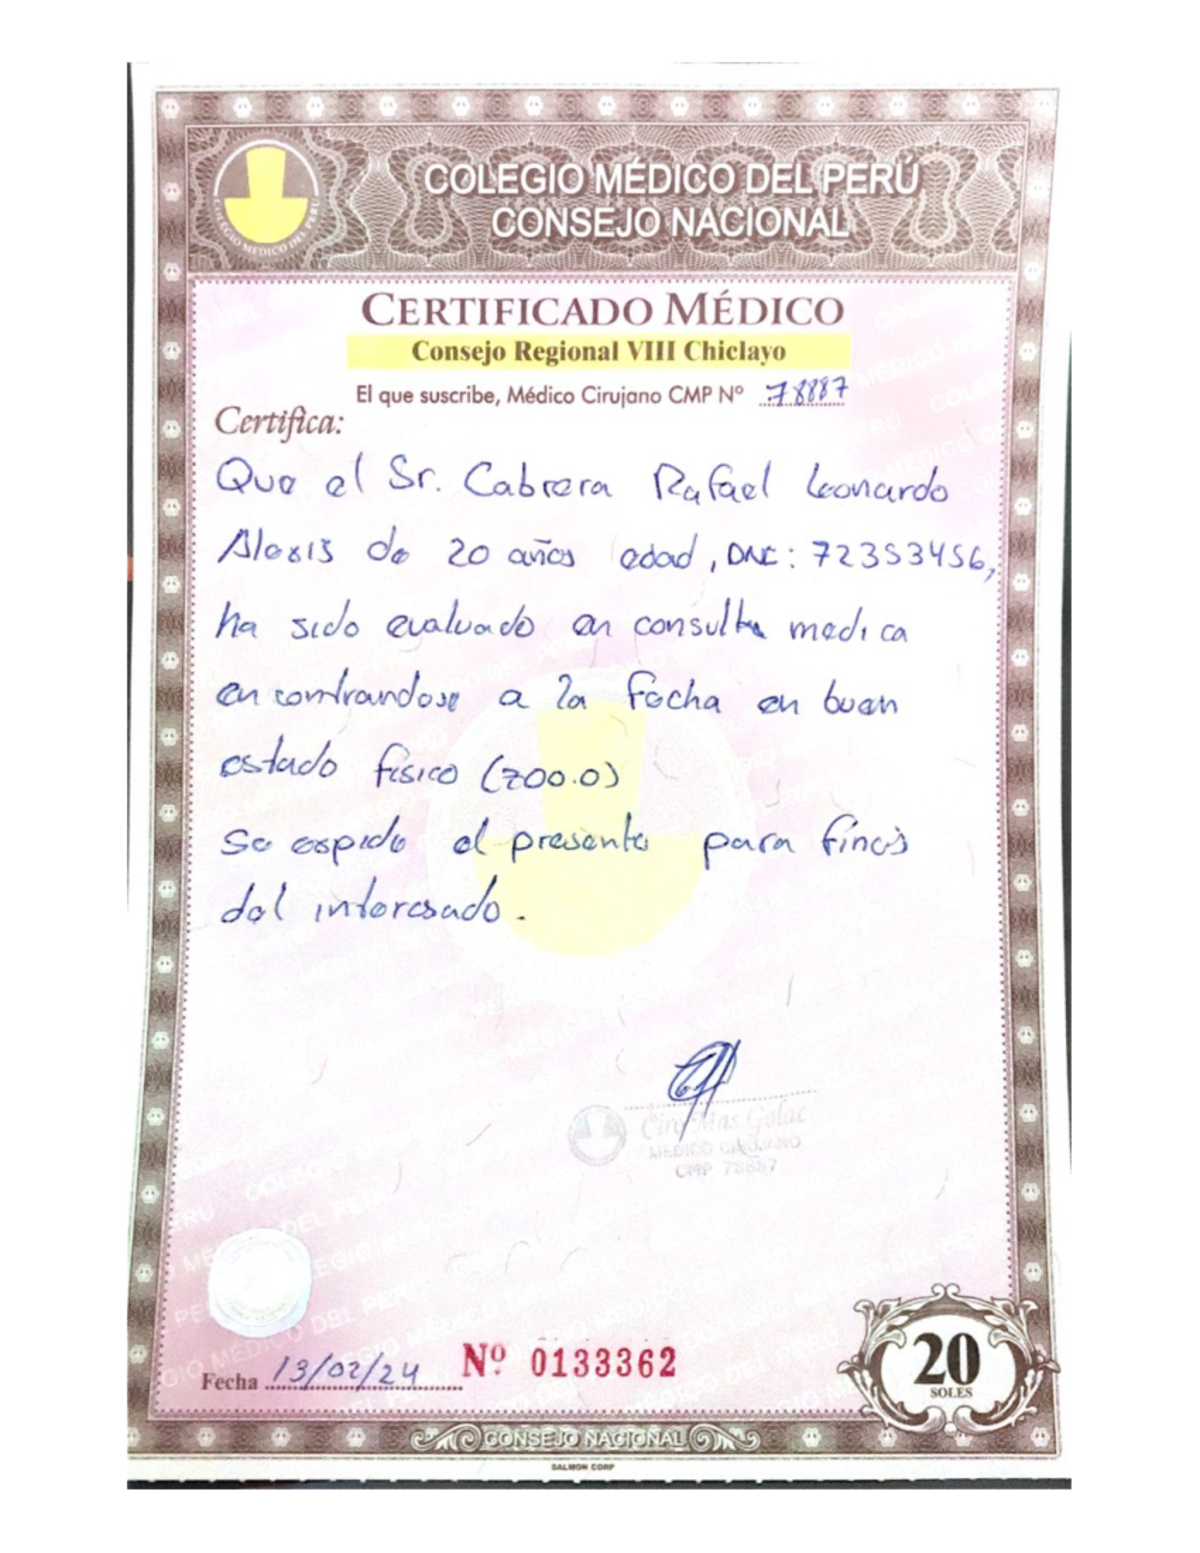 COLEGIO MÉDICO DEL PERÚ
CONSEJO NACIONAL
COLEGIO MEDICO DEL PERU
CERTIFICADO MÉDICO
Consejo Regional VIII Chiclayo
El que suscribe, Médico Cirujano CMP Nº 78887
Certifica:
Que el Sr. Cabrera Rafael Leonardo
Alexis de 20 años edad, DNI: 72353456,
ha sido evaluado en consulta medica
encontrandose a la fecha en buen
estado fisico (Z00.0)
Se expide el presente para fines
del interesado.
MEDICO CIRUJANO
CMP 78887
Fecha 13/02/24 Nº 0133362
20
SOLES
CONSEJO NACIONAL
SALMON CORP